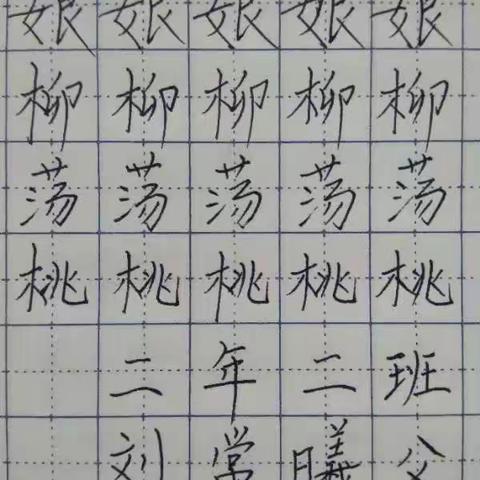 娘娘娘娘娘
柳柳柳柳柳
荡荡荡荡荡
桃桃桃桃桃
二年二班
刘常曦父